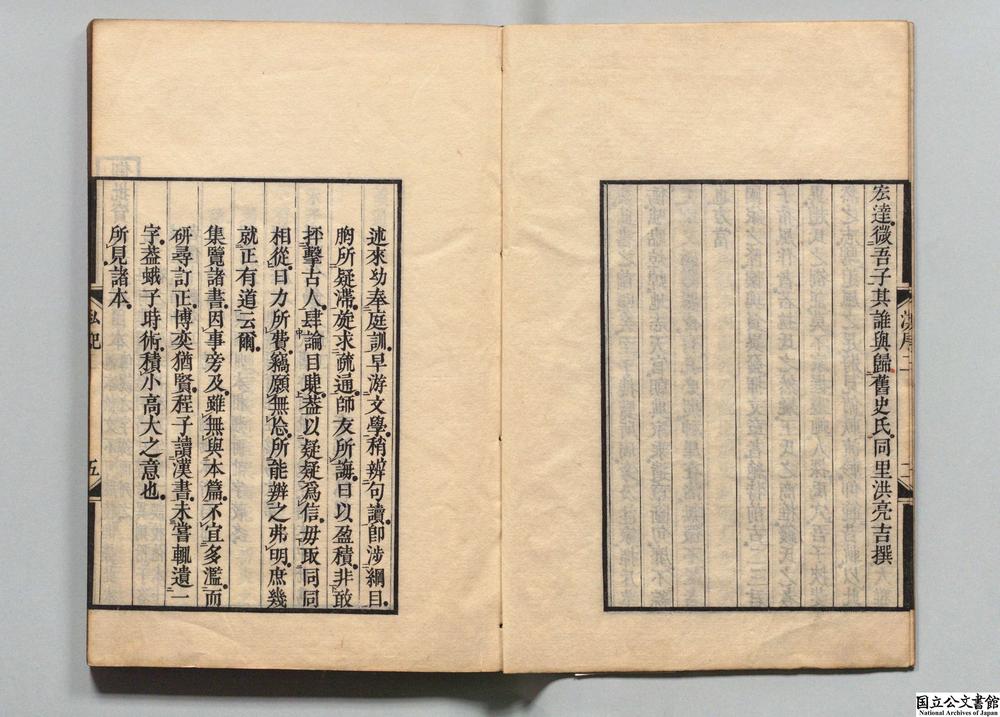 宏達微吾子其誰與歸舊史氏同里洪亮吉撰
述來幼奉庭訓早游文學稍辨句讀卽涉綱目
胸所疑滯旋求疏通師友所誨日以盈積非敢
抨擊古人肆論目睫葢以疑疑爲信毋取同同
相從日力所費竊願無忝所能辨之弗明庶幾
就正有道云爾
集覽諸書因事旁及雖無與本篇不宜多濫而
研尋訂正博奕猶賢程子讀漢書未嘗輒遺一
字葢蛾子時術積小高大之意也
所見諸本
五
国立公文書館
National Archives of Japan